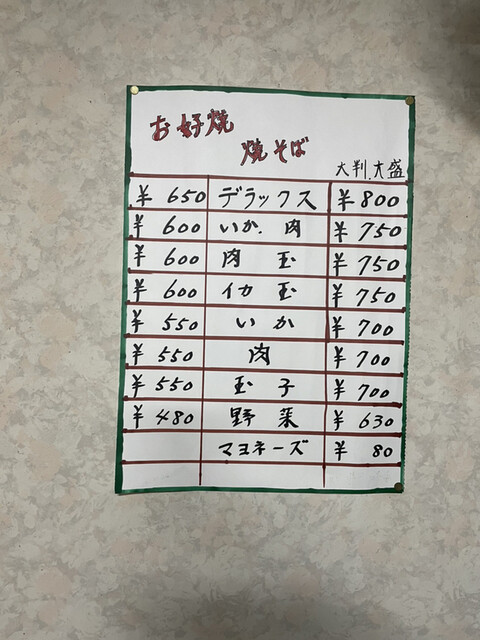 お好焼
焼そば
大判.大盛
¥650 デラックス ¥800
¥600 いか.肉 ¥750
¥600 肉玉 ¥750
¥600 イカ玉 ¥750
¥550 いか ¥700
¥550 肉 ¥700
¥550 玉子 ¥700
¥480 野菜 ¥630
マヨネーズ ¥80